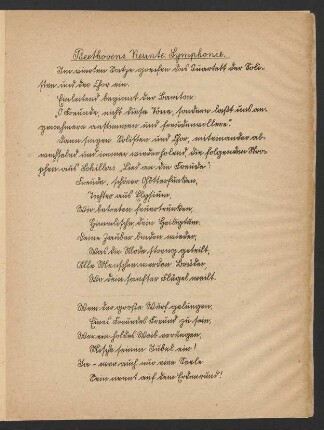 Beethovens Neunte Symphonie.
Im vierten Satze greifen das Quartett der Soli-
sten und der Chor ein.
Einleitend beginnt der Bariton:
"O Freunde, nicht diese Töne, sondern laßt uns an-
genehmere anstimmen und freudenvollere."
Dann singen Solisten und Chor, miteinander ab-
wechselnd und immer wiederholend, die folgenden Stro-
phen aus Schillers "Lied an die Freude":
Freude, schöner Götterfunken,
Tochter aus Elysium,
Wir betreten feuertrunken,
Himmlische, dein Heiligtum.
Deine Zauber binden wieder,
Was die Mode streng geteilt,
Alle Menschen werden Brüder,
Wo dein sanfter Flügel weilt.
Wem der große Wurf gelungen,
Eines Freundes Freund zu sein,
Wer ein holdes Weib errungen,
Mische seinen Jubel ein!
Ja - wer auch nur eine Seele
Sein nennt auf dem Erdenrund!